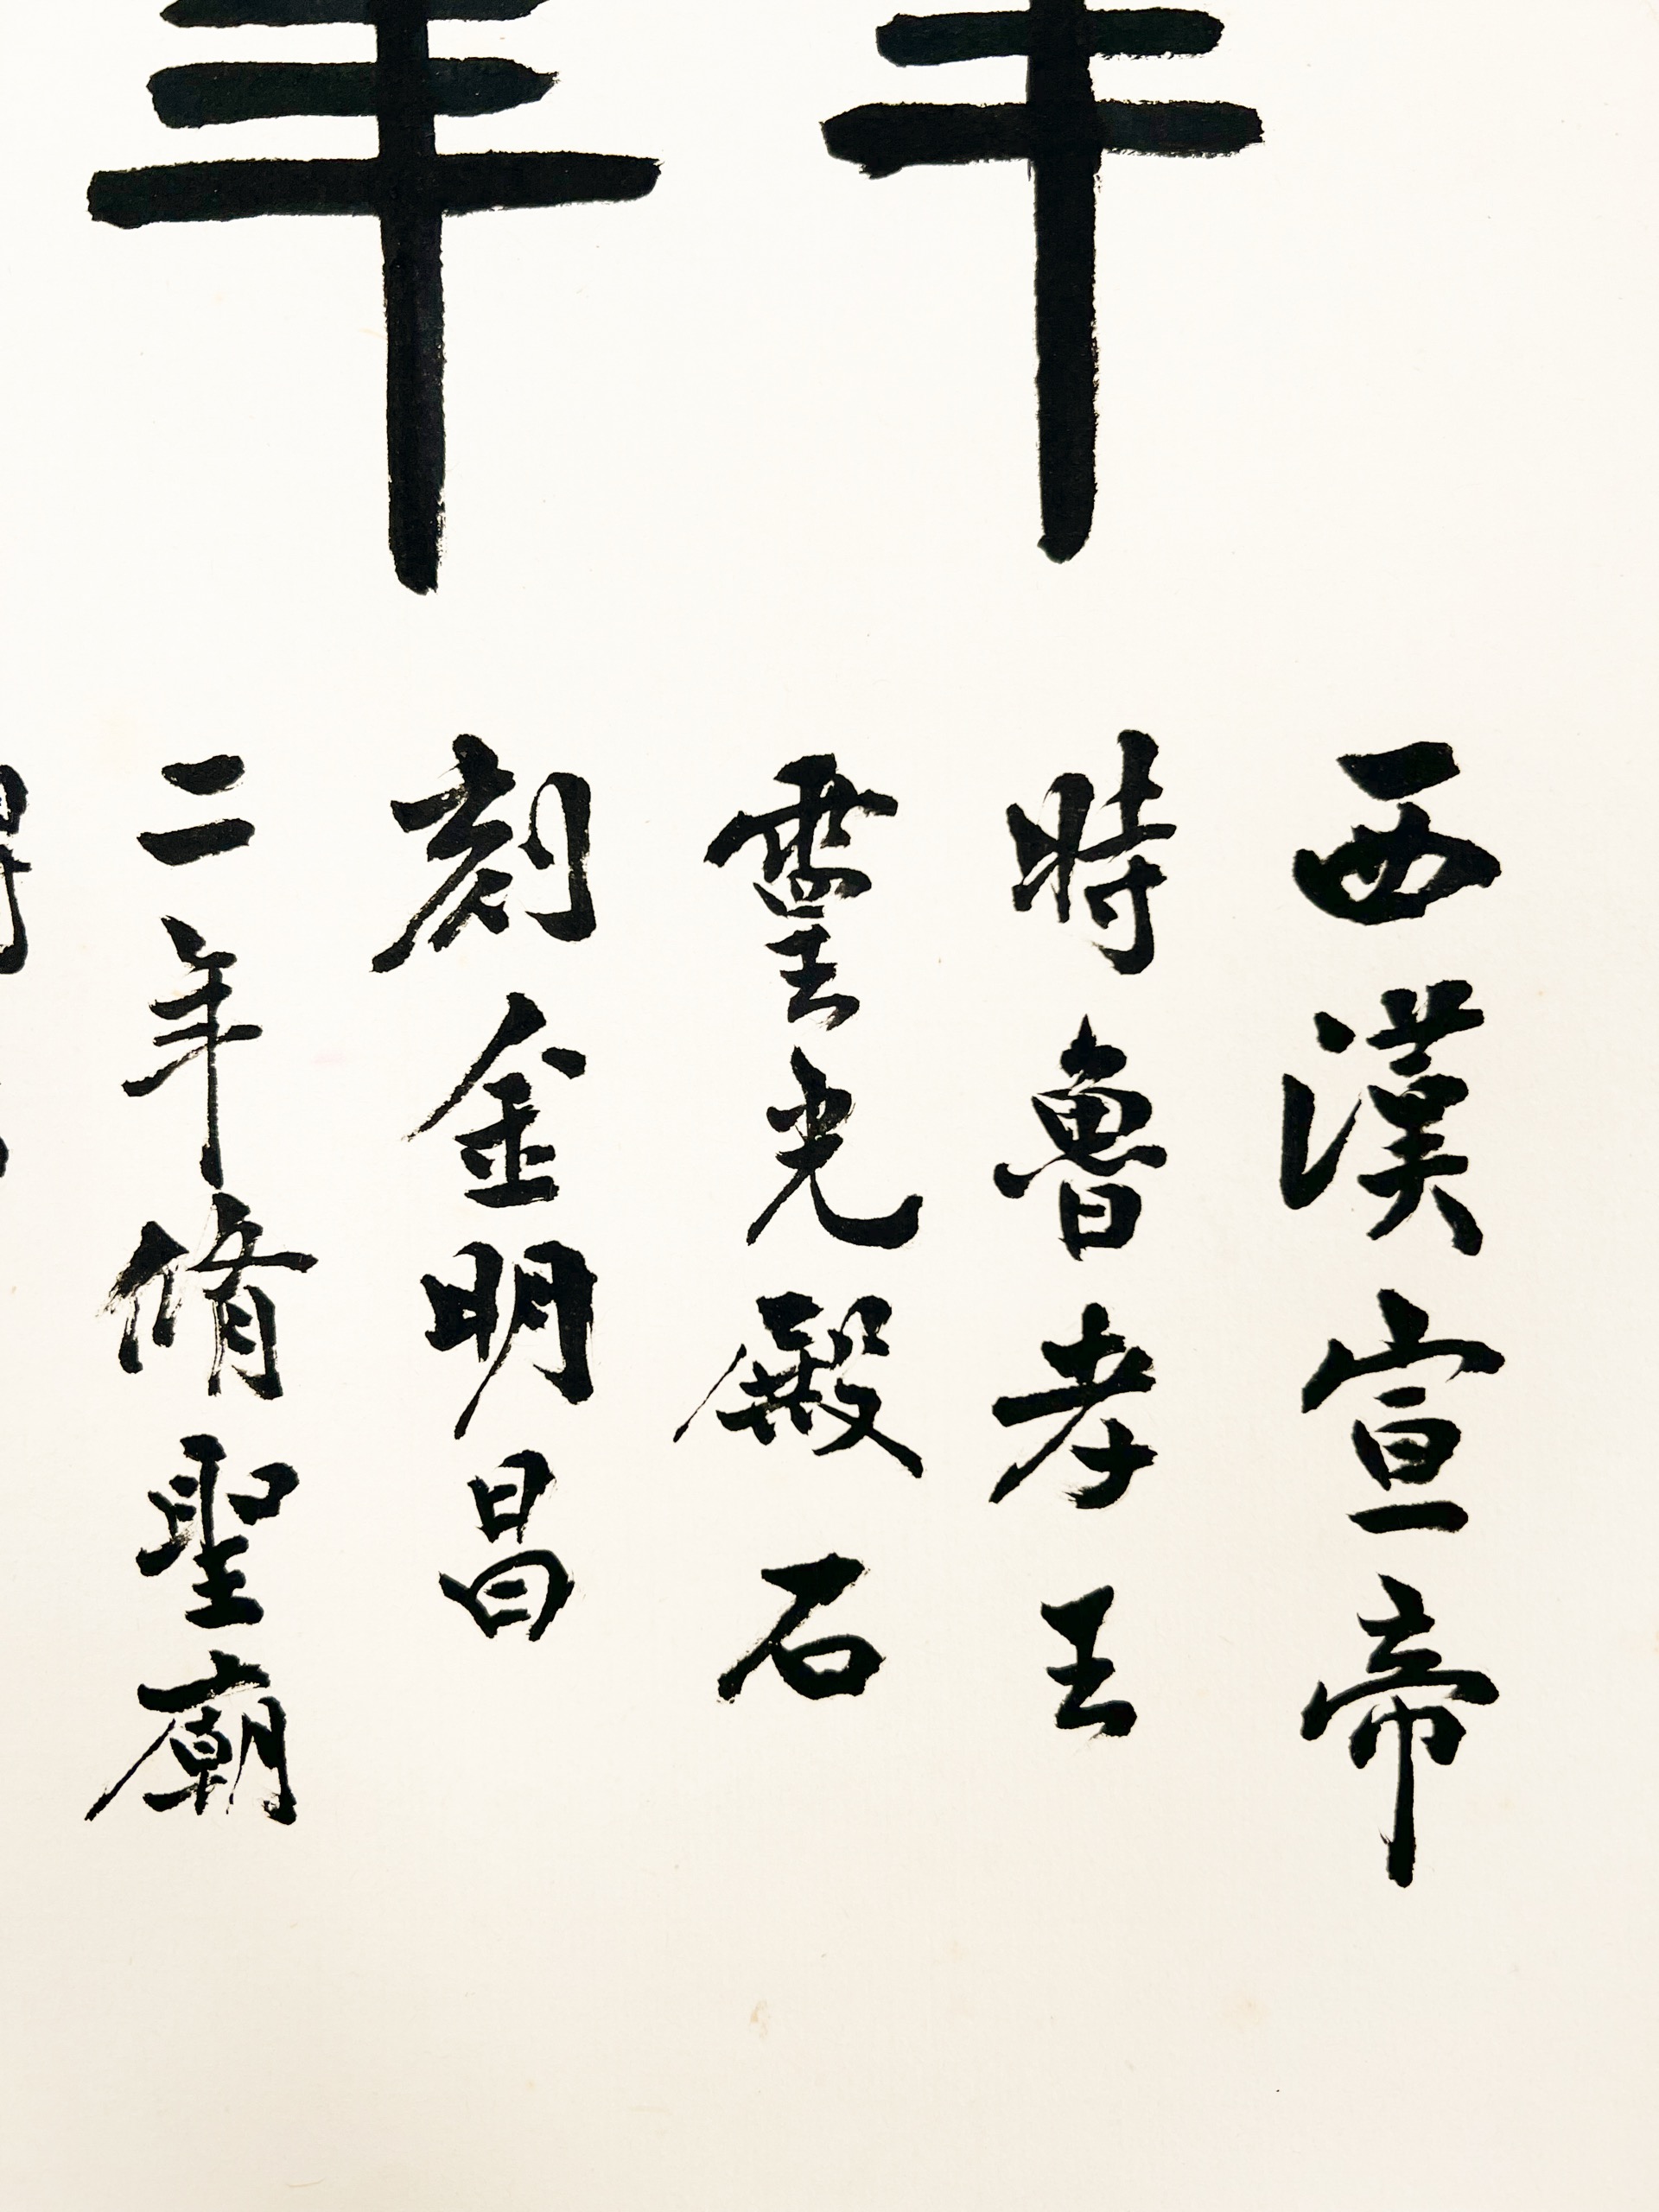 西漢宣帝
時魯孝王
靈光殿石
刻金明昌
二年脩聖廟